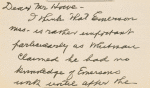 Dear Mr Hoove -
I think that Emerson
ms. is rather important
particularly as Whitman
claimed he had no
knowledge of Emersons
work until after the